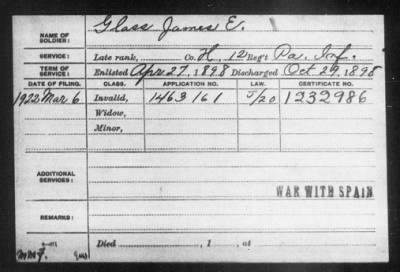 NAME OF SOLDIER: Glass James E.
SERVICE: Late rank, Co. H, 12 Reg't Pa. Inf.
TERM OF SERVICE: Enlisted Apr 27, 1898 Discharged Oct 29, 1898
DATE OF FILING. CLASS. APPLICATION NO. LAW. CERTIFICATE NO.
1922 Mar 6 Invalid, 1463161 5/20 1232986
Widow,
Minor,
ADDITIONAL SERVICES:
WAR WITH SPAIN
REMARKS:
Died , 1 , at